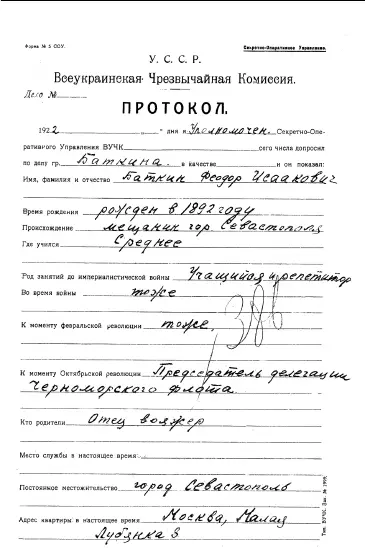 Форма № 5 СОУ.
Секретно-Оперативное Управление.
У. С. С. Р.
Всеукраинская Чрезвычайная Комиссия.
Дело №
ПРОТОКОЛ.
1922 „ “ дня я Уполномочен. Секретно-Опе-
ративного Управления ВУЧК сего числа допросил
по делу гр. Баткина. в качестве и он показал:
Имя, фамилия и отчество Баткин Феодор Исаакович
Время рождения рожден в 1892 году
Происхождение мещанин гор. Севастополя
Где учился Среднее
Род занятий до империалистической войны Учащийся и репетитор
Во время войны тоже
К моменту февральской революции тоже.
К моменту Октябрьской революции Председатель делегации
Черноморского флота.
Кто родители Отец вояжер
Место службы в настоящее время:
Постоянное местожительство город Севастополь
Адрес квартиры в настоящее время Москва, Малая
Лубянка 3
Тип. ВУЧК. Зак. №